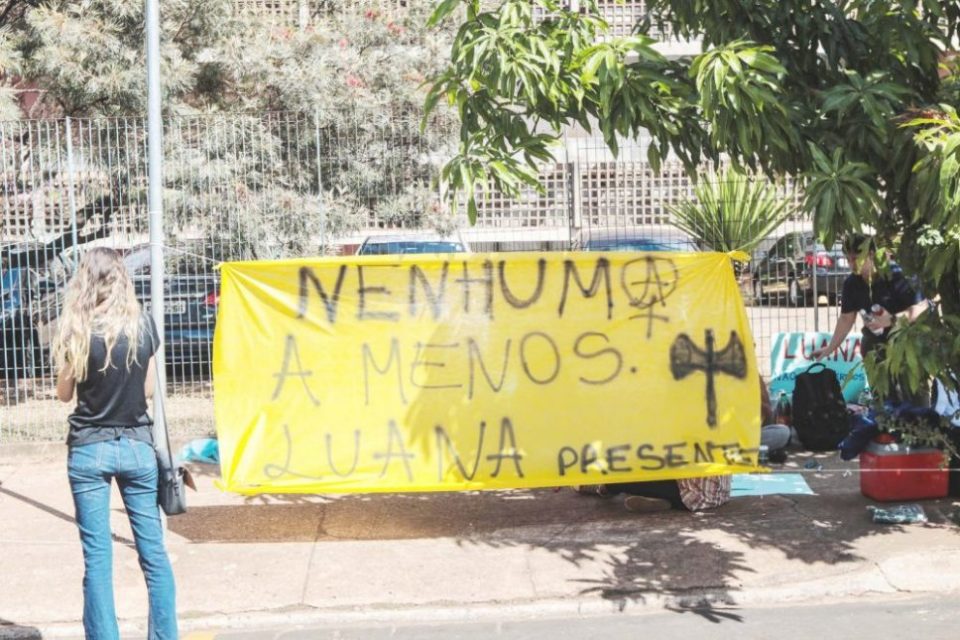 NENHUMA
A MENOS.
LUANA PRESENTE
LUANA